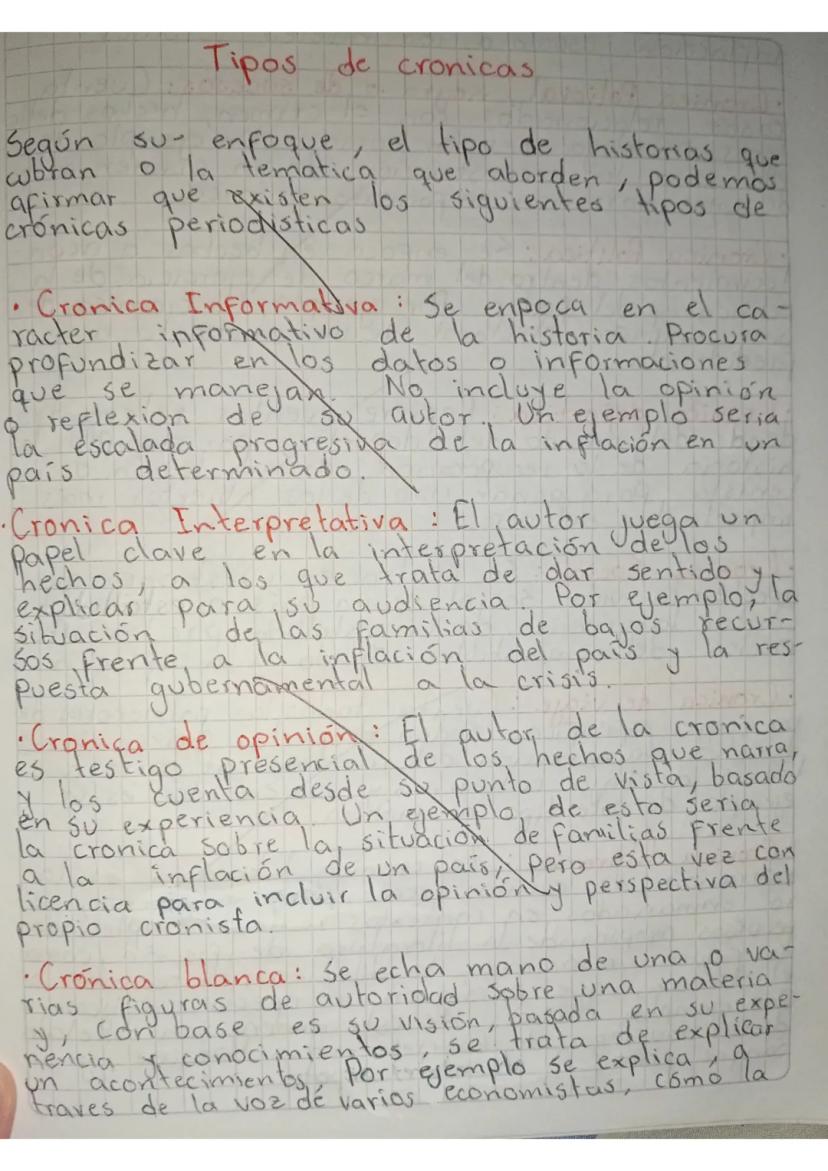 Tipos de cronicas
Según su- enfoque, el tipo de historias que
cubran o la tematica que aborden, podemos
afirmar que existen los siguientes tipos de
crónicas periodisticas
· Cronica Informativa : Se enpoca en el ca-
racter informativo de la historia. Procura
profundizar en los datos o informaciones
que se manejan. No incluye la opinión
o reflexion de su autor. Un ejemplo seria
la escalada progresiva de la inflación en un
país determinado.
· Cronica Interpretativa : El autor juega un
papel clave en la interpretación de los
hechos, a los que trata de dar sentido y
explicar para su audiencia. Por ejemplo, la
situación de las familias de bajos recur-
sos frente a la inflación del país y la res-
puesta gubernamental a la crisis.
· Cronica de opinión : El autor de la cronica
es testigo presencial de los hechos que narra,
y los cuenta desde su punto de vista, basado
en su experiencia. Un ejemplo de esto seria
la cronica sobre la situación de familias frente
a la inflación de un país, pero esta vez con
licencia para incluir la opinión y perspectiva del
propio cronista.
· Crónica blanca: Se echa mano de una o va-
rias figuras de autoridad sobre una materia
y, con base es su visión, basada en su expe-
riencia y conocimientos, se trata de explicar
un acontecimientos, Por ejemplo se explica, a
traves de la voz de varios economistas, cómo la